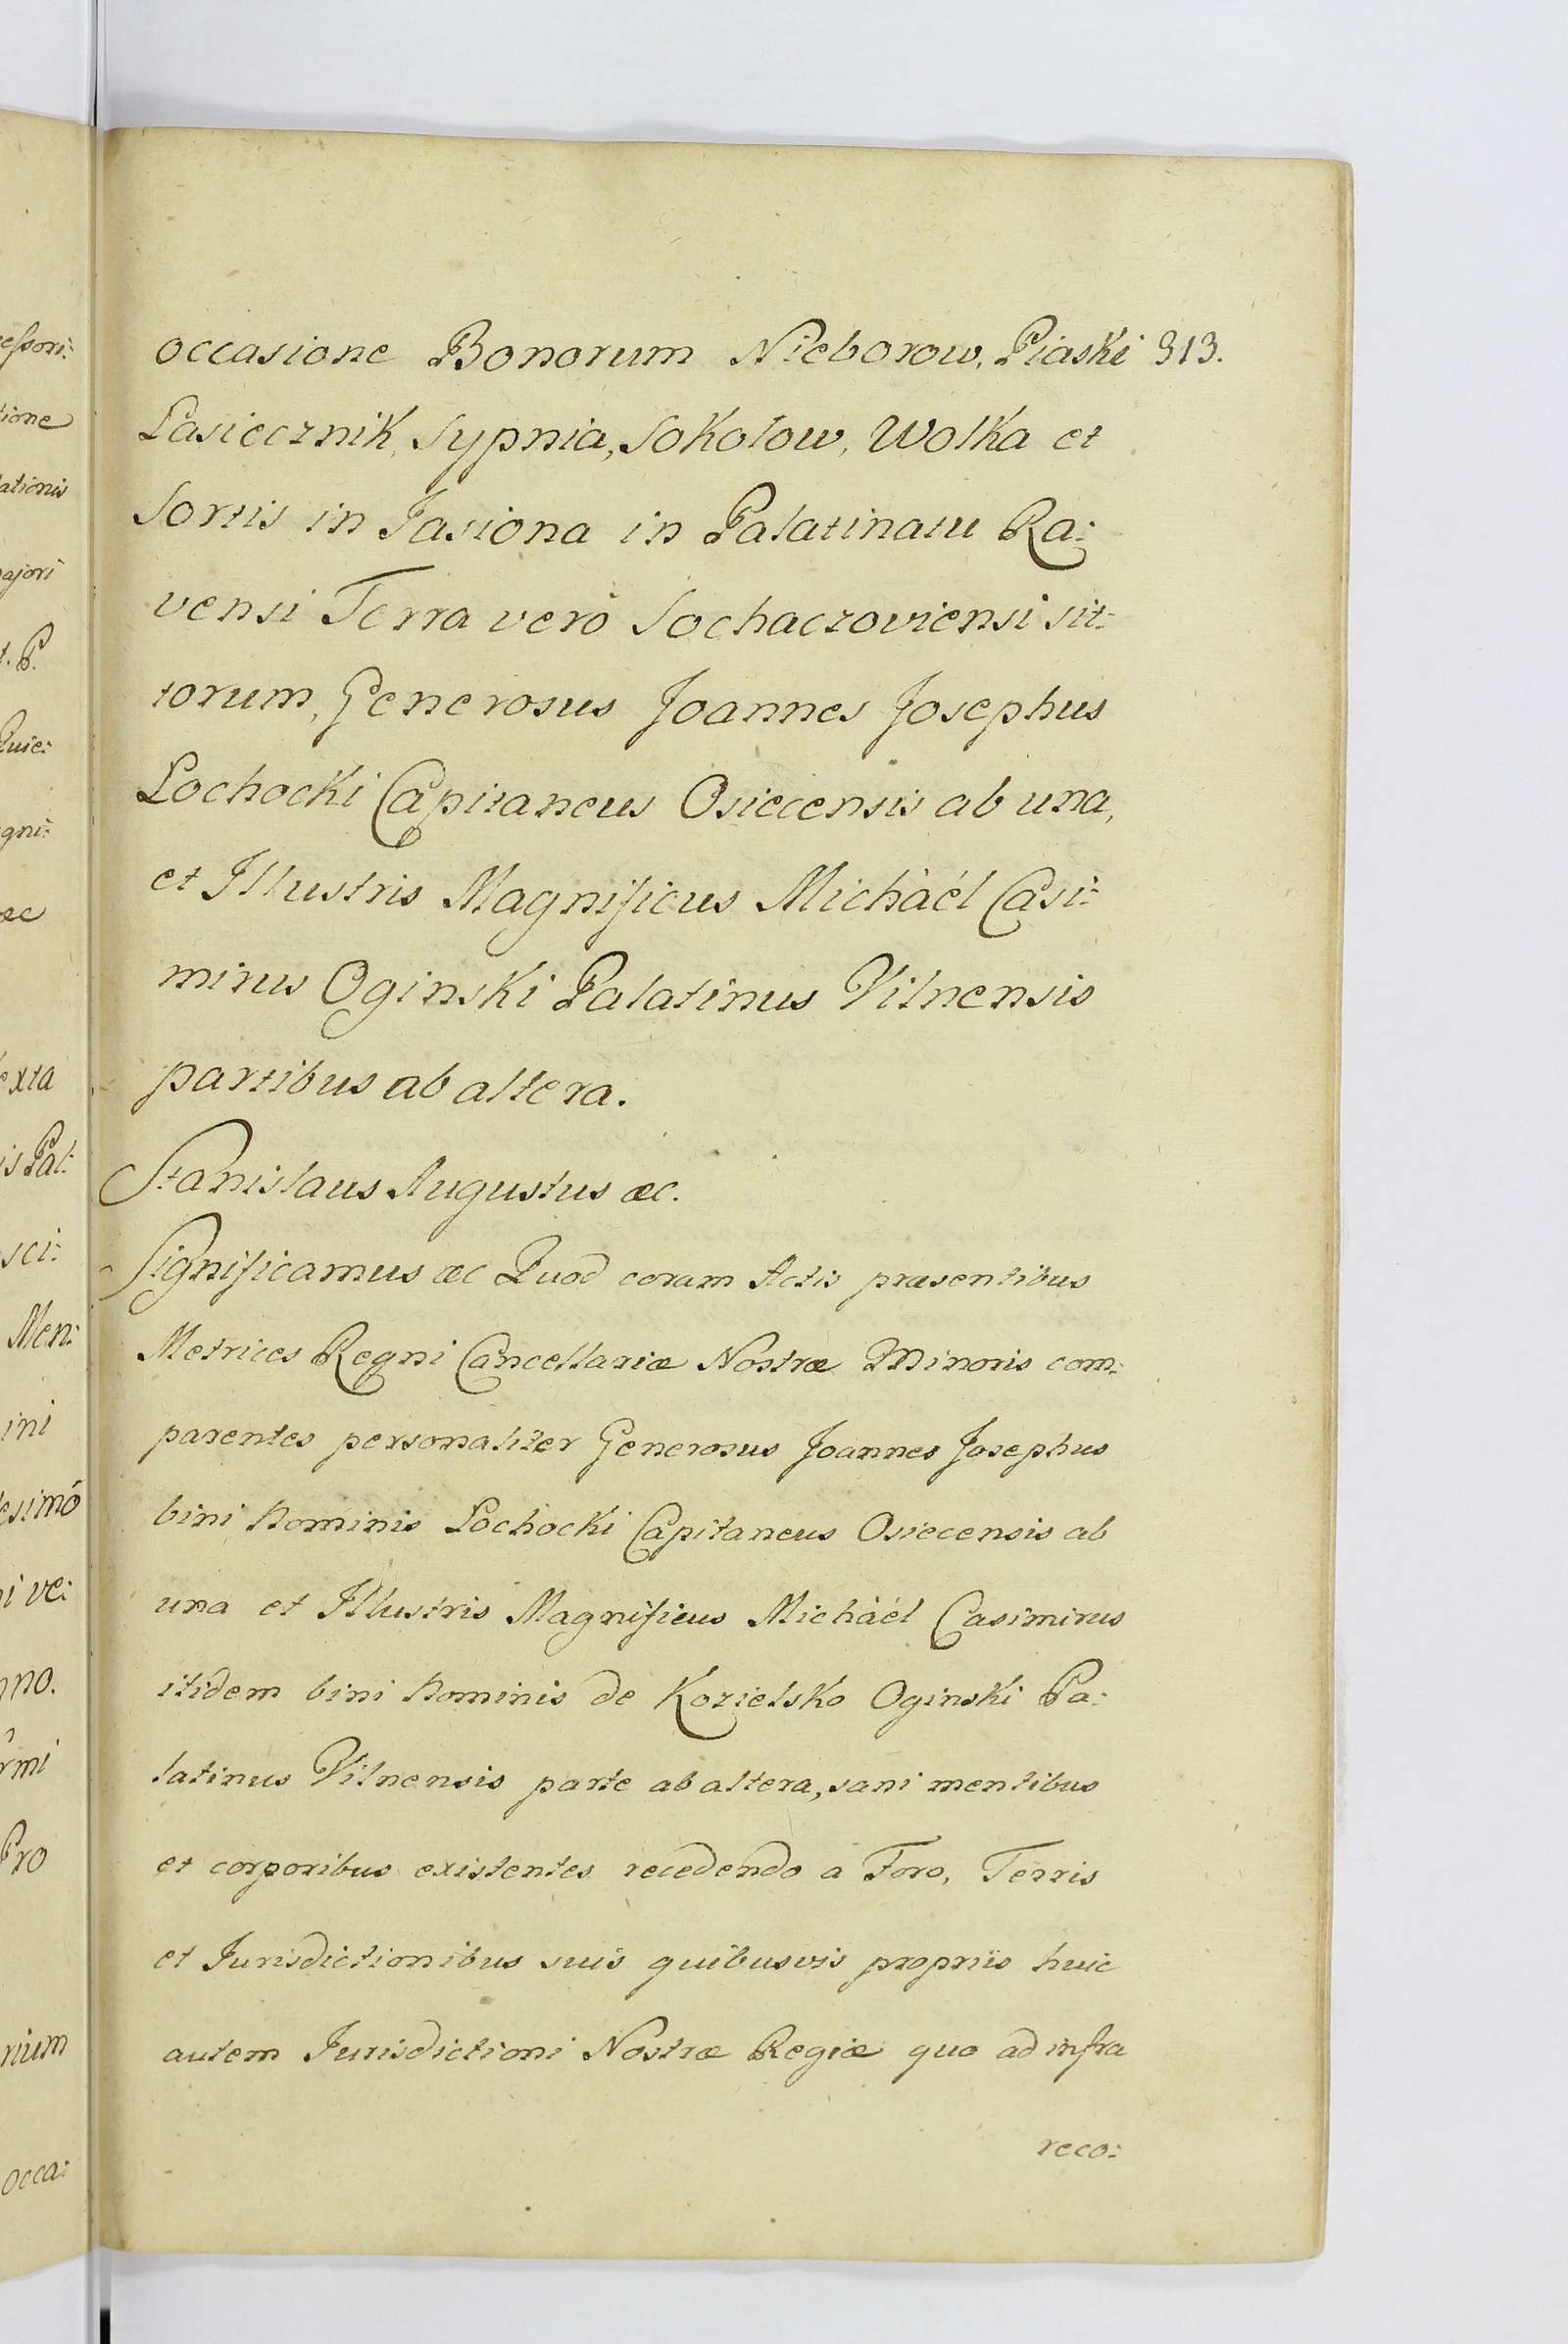 occasione Bonorum Nieborow, Piaski 313.
Lasiecznik, Sypnia, Sokolow, Wolka et
Sortis in Jasiona in Palatinatu Ra:
vensi Terra verò Sochaczoviensi sit:
torum, Generosus Joannes Josephus
Lochocki Capitaneus Osiecensis ab una,
et Illustris Magnificus Michàél Casi:
mirus Oginski Palatinus Vilnensis
partibus ab altera.
Stanislaus Augustus æc.
Significamus æc Quod coram Actis præsentibus
Metrices Regni Cancellariæ Nostræ Minoris com:
parentes personaliter Generosus Joannes Josephus
bini Nominis Lochocki Capitaneus Osiecensis ab
una et Illustris Magnificus Michàél Casimirus
itidem bini Nominis de Kozielsko Oginski Pa:
latinus Vilnensis parte ab altera, sani mentibus
et corporibus existentes recedendo a Foro, Terris
et Jurisdictionibus suis quibusvis propriis huic
autem Jurisdictioni Nostræ Regiæ quo ad infra
reco: